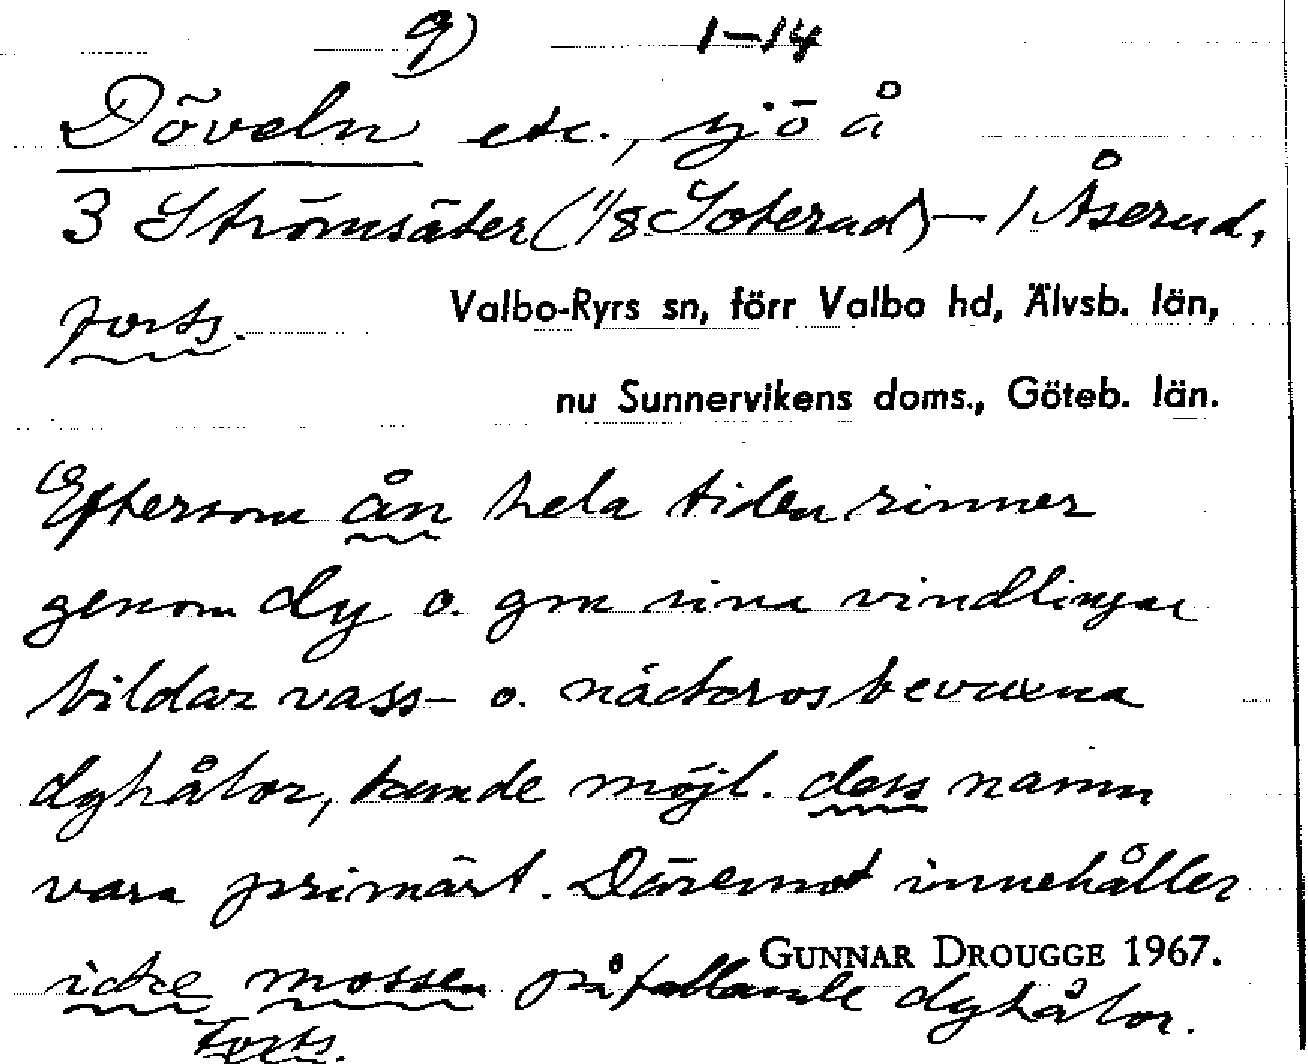 9) 1-14
Döveln etc., sjö å
3 Strömsäter (1/8 Soterud) - 1 Åserud,
forts.
Valbo-Ryrs sn, förr Valbo hd, Älvsb. län,
nu Sunnervikens doms., Göteb. län.
Eftersom ån hela tiden rinner
genom dy o. gm sina vindlingar
bildar vass- o. näckrosbevuxna
dyhålor, kunde möjl. dess namn
vara primärt. Däremot innehåller
GUNNAR DROUGGE 1967.
icke mossen påfallande dyhålor.
Forts.